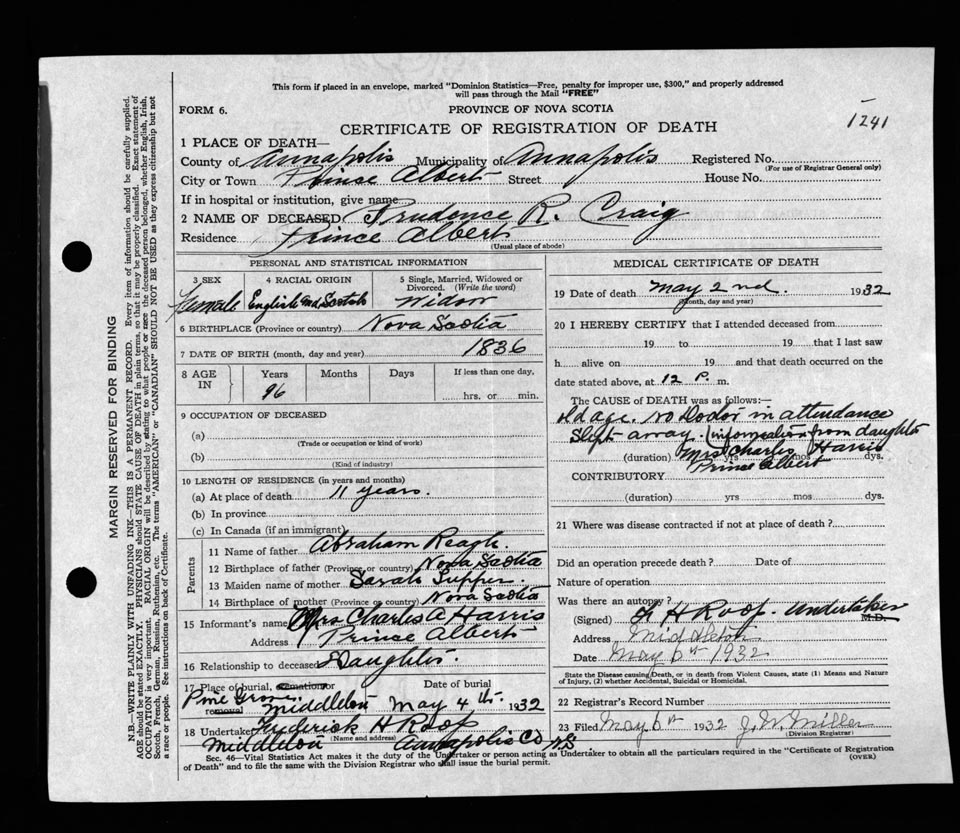 This form if placed in an envelope, marked "Dominion Statistics—Free, penalty for improper use, $300," and properly addressed
will pass through the Mail "FREE"
FORM 6.
PROVINCE OF NOVA SCOTIA
1241
CERTIFICATE OF REGISTRATION OF DEATH
1 PLACE OF DEATH—
County of Annapolis Municipality of Annapolis Registered No.
(For use of Registrar General only)
City or Town Prince Albert Street House No.
If in hospital or institution, give name
2 NAME OF DECEASED Prudence R. Craig
Residence Prince Albert
(Usual place of abode)
PERSONAL AND STATISTICAL INFORMATION
3 SEX 4 RACIAL ORIGIN 5 Single, Married, Widowed or
Divorced. (Write the word)
Female English and Scotch Widow
6 BIRTHPLACE (Province or country) Nova Scotia
7 DATE OF BIRTH (month, day and year) 1836
8 AGE IN Years Months Days If less than one day,
96 hrs. or min.
9 OCCUPATION OF DECEASED
(a)
(Trade or occupation or kind of work)
(b)
(Kind of industry)
10 LENGTH OF RESIDENCE (in years and months)
(a) At place of death 11 years.
(b) In province
(c) In Canada (if an immigrant)
Parents
11 Name of father Abraham Reagh
12 Birthplace of father (Province or country) Nova Scotia
13 Maiden name of mother Sarah Tupper
14 Birthplace of mother (Province or Country) Nova Scotia
15 Informant's name Mrs Charles A Harris
Address Prince Albert
16 Relationship to deceased Daughter.
17 Place of burial, cremation or Date of burial
removal Pine Grove Middleton May 4th 1932
18 Undertaker Frederick H Roop
(Name and address)
Middleton Annapolis Co N.S
MEDICAL CERTIFICATE OF DEATH
19 Date of death May 2nd. 1932
(Month, day and year)
20 I HEREBY CERTIFY that I attended deceased from
19 to 19 that I last saw
h alive on 19 and that death occurred on the
date stated above, at 12 P. m.
The CAUSE OF DEATH was as follows:—
old age. no Doctor in attendance
slept away. (information from daughter
(duration) yrs mos dys.
Mrs Charles Harris
Prince Albert
CONTRIBUTORY
(duration) yrs mos dys.
21 Where was disease contracted if not at place of death?
Did an operation precede death? Date of
Nature of operation
Was there an autopsy?
(Signed) F H Roop. Undertaker M.D.
Address Middleton
Date May 6th 1932
State the Disease causing Death, or in death from Violent Causes, state (1) Means and Nature
of Injury, (2) whether Accidental, Suicidal or Homicidal.
22 Registrar's Record Number
23 Filed May 6th 1932 J. W. Miller
(Division Registrar)
Sec. 46—Vital Statistics Act makes it the duty of the Undertaker or person acting as Undertaker to obtain all the particulars required in the "Certificate of Registration
of Death" and to file the same with the Division Registrar who shall issue the burial permit.
(OVER)
MARGIN RESERVED FOR BINDING
N.B.—WRITE PLAINLY WITH UNFADING INK—THIS IS A PERMANENT RECORD. Every item of information should be carefully supplied.
AGE should be stated EXACTLY. PHYSICIANS should STATE CAUSE OF DEATH in plain terms, so that it may be properly classified. Exact statement of
OCCUPATION is very important. RACIAL ORIGIN will be described by stating to what people or race the deceased person belonged, whether English, Irish,
Scotch, French, German, Russian, Ruthenian, etc. The terms "AMERICAN" or "CANADIAN" SHOULD NOT BE USED as they express citizenship but not
a race or people. See instructions on back of Certificate.